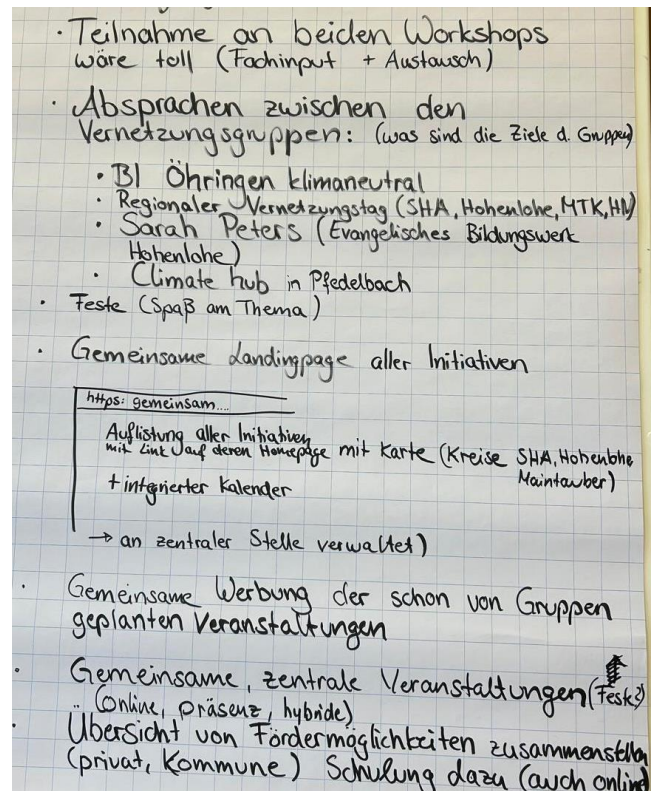 · Teilnahme an beiden Workshops
wäre toll (Fachinput + Austausch)
· Absprachen zwischen den
Vernetzungsgruppen: (was sind die Ziele d. Gruppen)
· BI Öhringen klimaneutral
· Regionaler Vernetzungstag (SHA, Hohenlohe, MTK, HN)
· Sarah Peters (Evangelisches Bildungswerk
Hohenlohe)
· Climate hub in Pfedelbach
· Feste (Spaß am Thema)
· Gemeinsame Landingpage aller Initiativen
https: gemeinsam....
Auflistung aller Initiativen
mit Link auf deren Homepage mit Karte (Kreise SHA, Hohenlohe
Maintauber)
+ integrierter Kalender
→ an zentraler Stelle verwaltet)
· Gemeinsame Werbung der schon von Gruppen
geplanten Veranstaltungen
· Gemeinsame, zentrale Veranstaltungen (Feste?)
(online, präsenz, hybride)
· Übersicht von Fördermöglichkeiten zusammenstellen
(privat, Kommune) Schulung dazu (auch online)